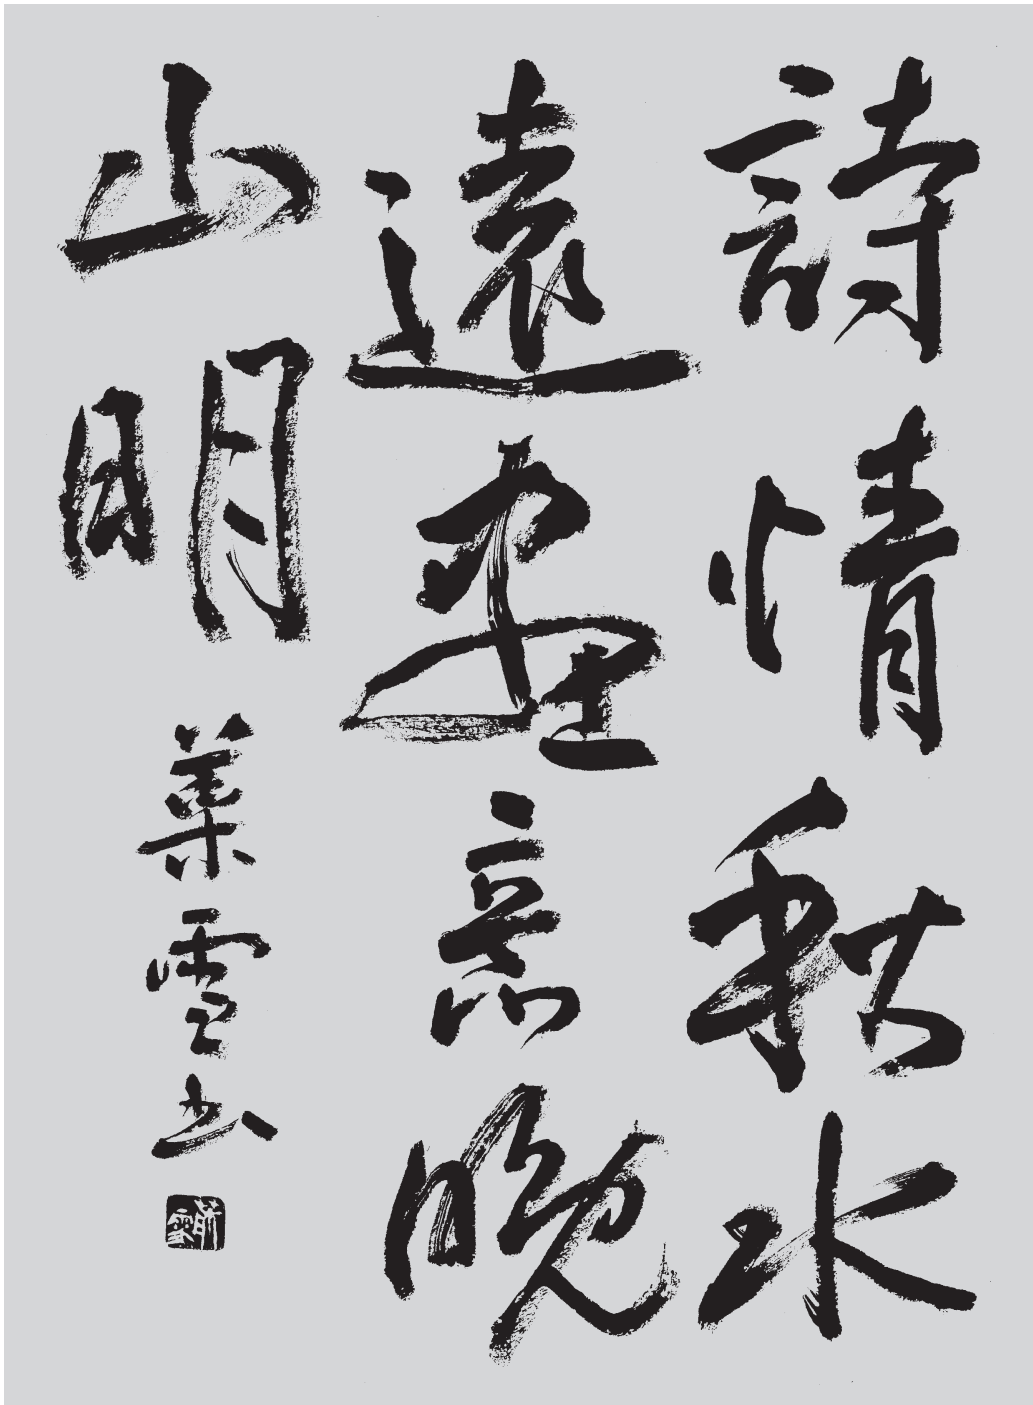 詩情秋水
遠畫意晚
山明
葉雪書